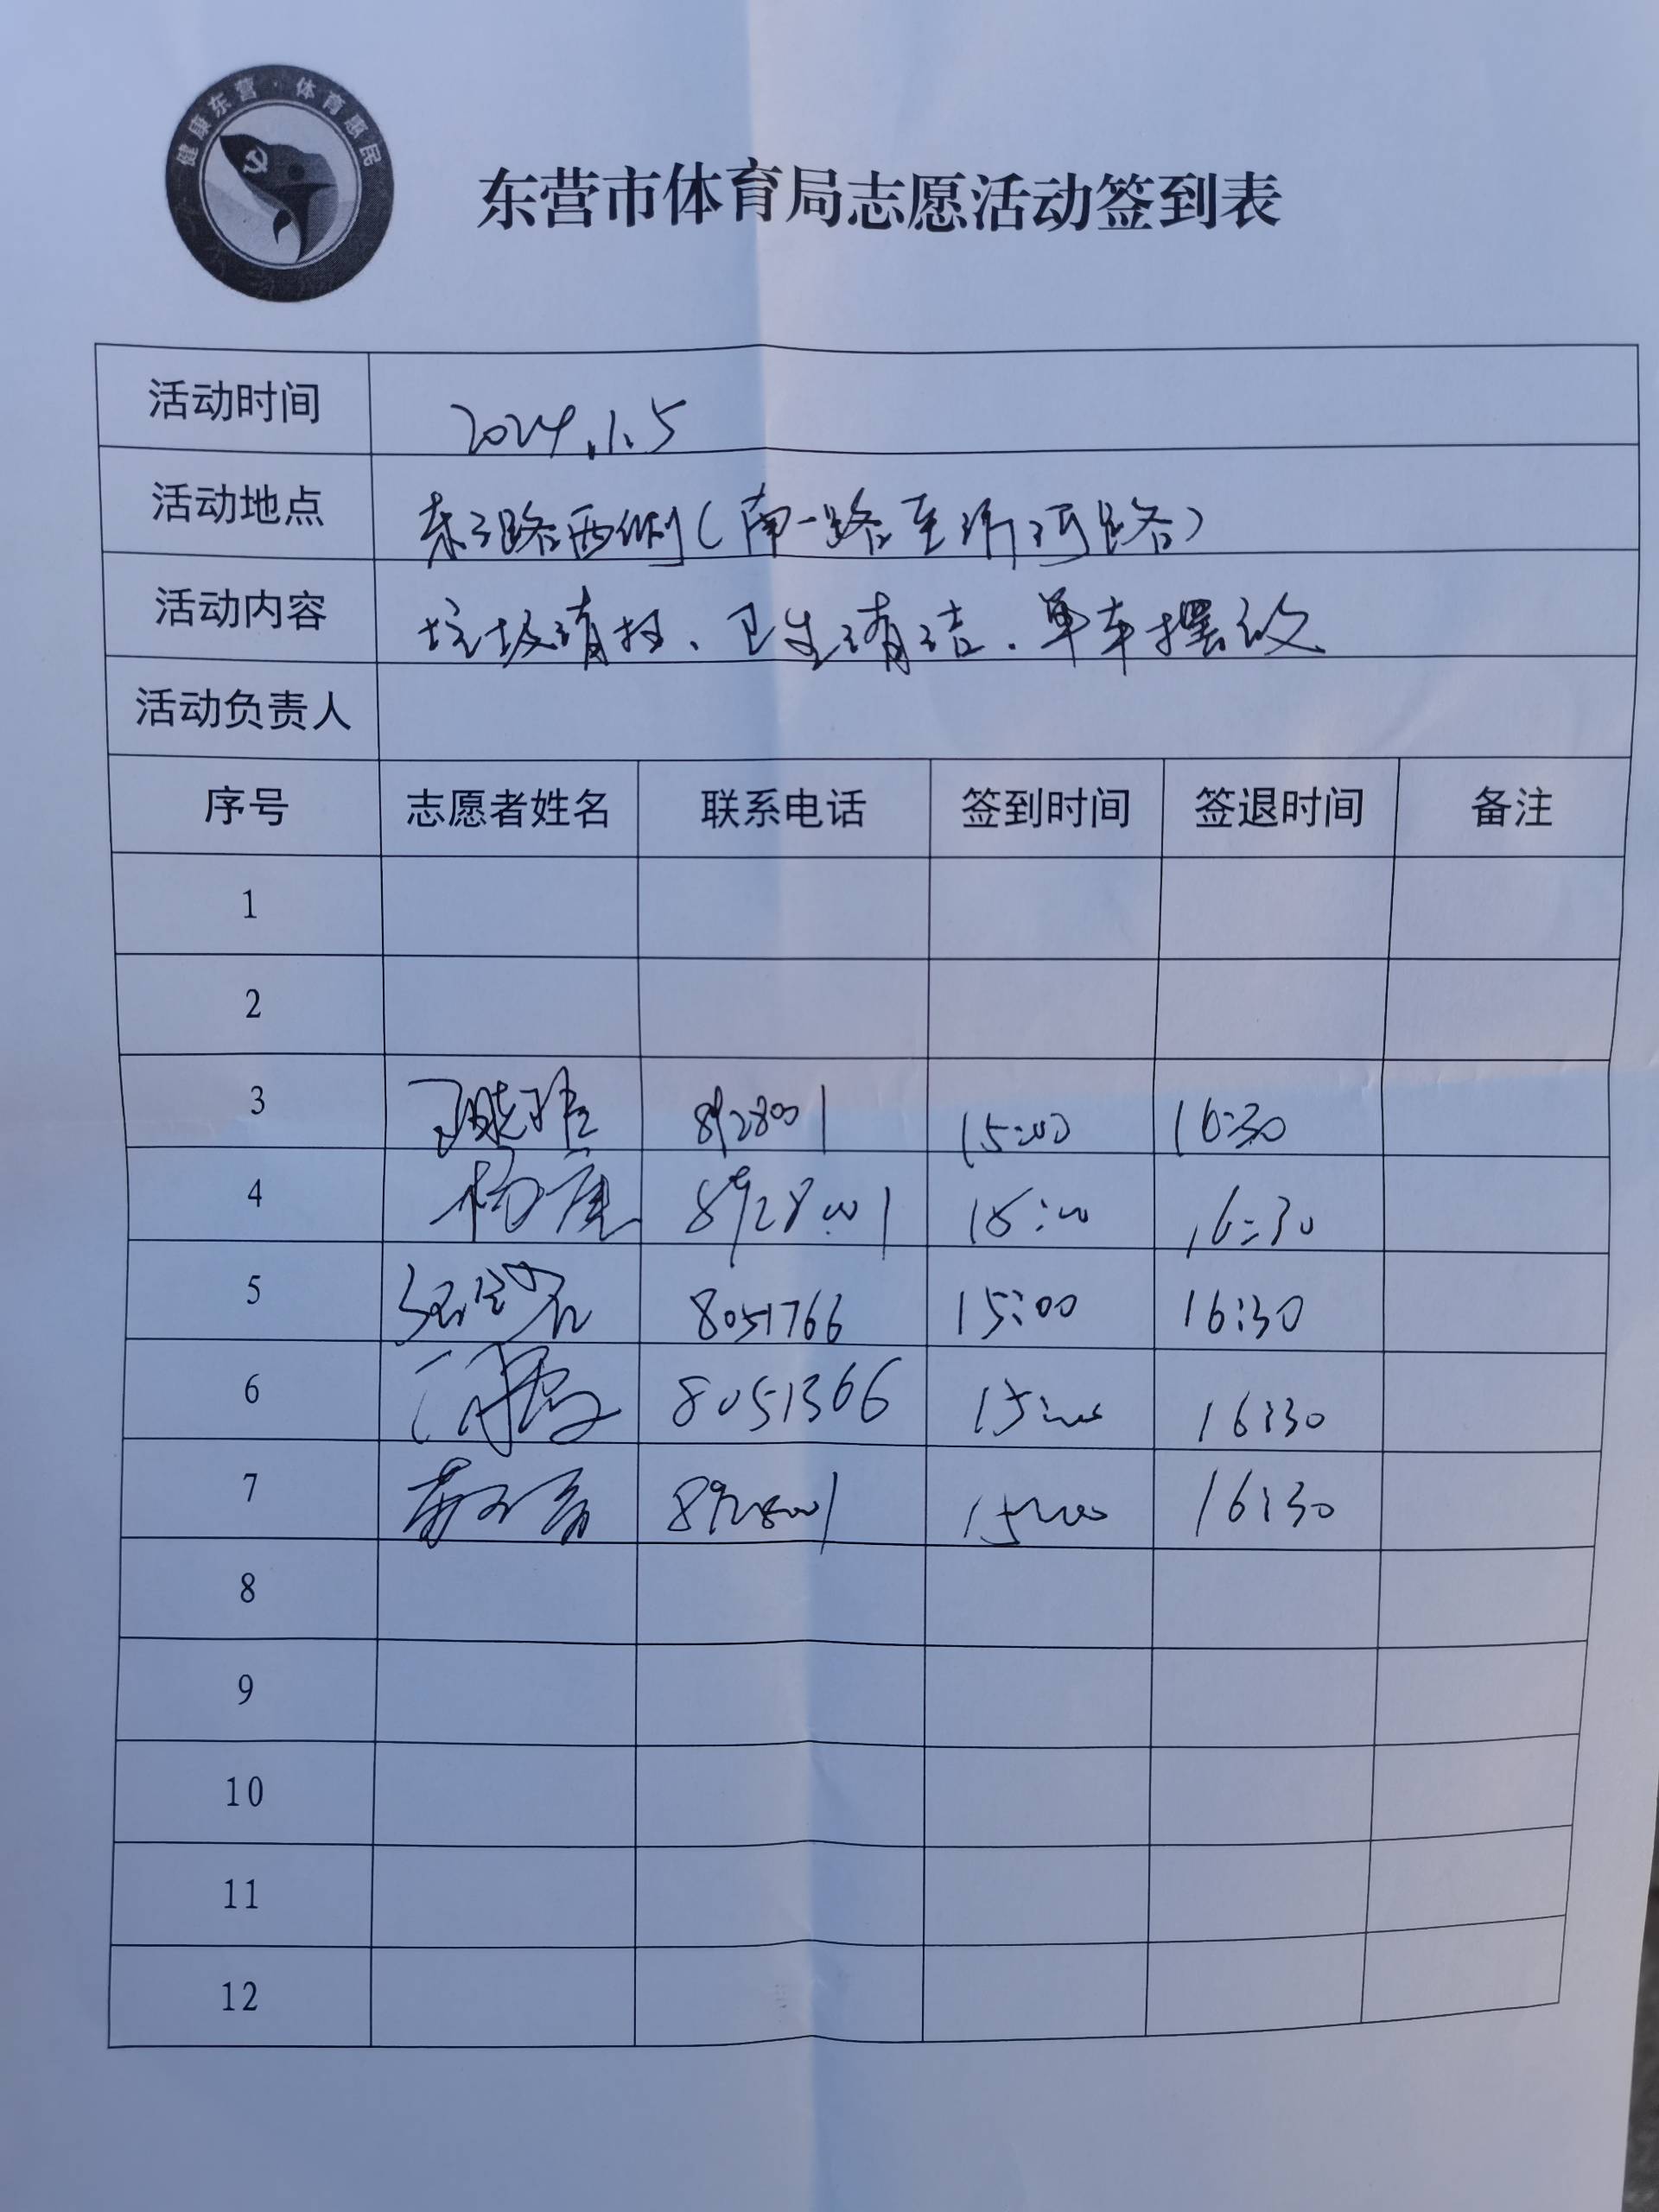 健康东营·体育惠民
东营市体育局志愿活动签到表
活动时间 2024.1.5
活动地点 东三路西侧(南一路至沂河路)
活动内容 垃圾清扫、卫生清洁、单车摆放
活动负责人
序号 志愿者姓名 联系电话 签到时间 签退时间 备注
1
2
3 8928001 15:00 16:30
4 杨 8928001 15:00 16:30
5 8051766 15:00 16:30
6 8051366 15:00 16:30
7 8928001 15:00 16:30
8
9
10
11
12